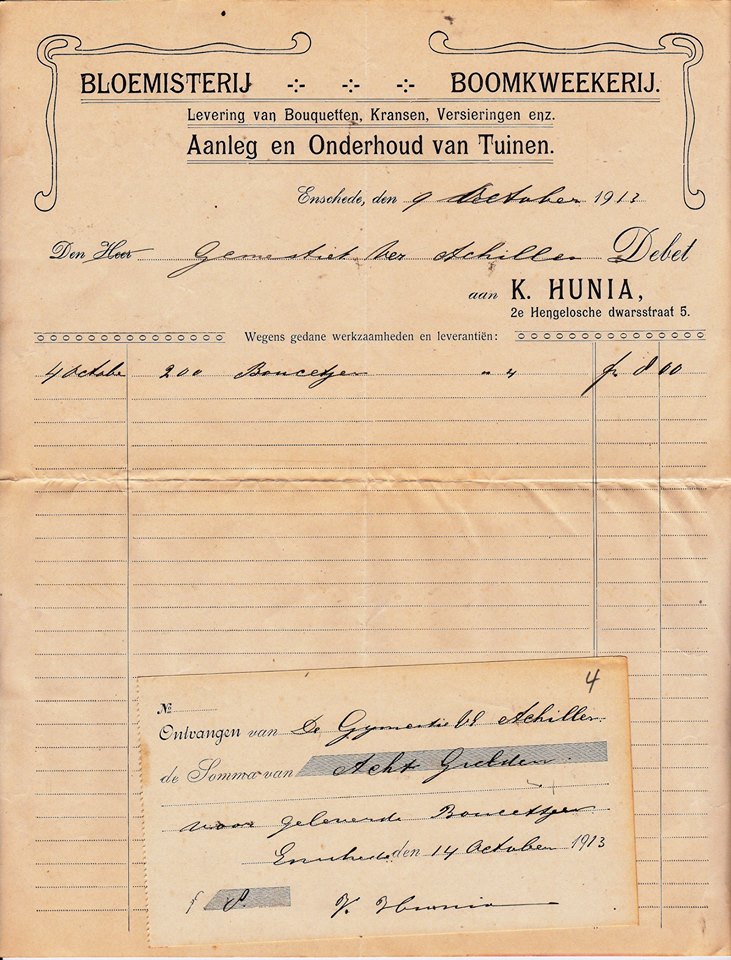 BLOEMISTERIJ BOOMKWEEKERIJ.
Levering van Bouquetten, Kransen, Versieringen enz.
Aanleg en Onderhoud van Tuinen.
Enschede, den 9 October 1913
Den Heer Gemestiek Ver Achilles Debet
aan K. HUNIA,
2e Hengelosche dwarsstraat 5.
Wegens gedane werkzaamheden en leverantiën:
4 Octobe 200 Boucetjen " 4 f 8 00
4
No
Ontvangen van De Gymestie Achilles
de Somma van Acht Gulden.
voor geleverde Boucetjen
Enschede den 14 October 1913
f 8. K. Hunia